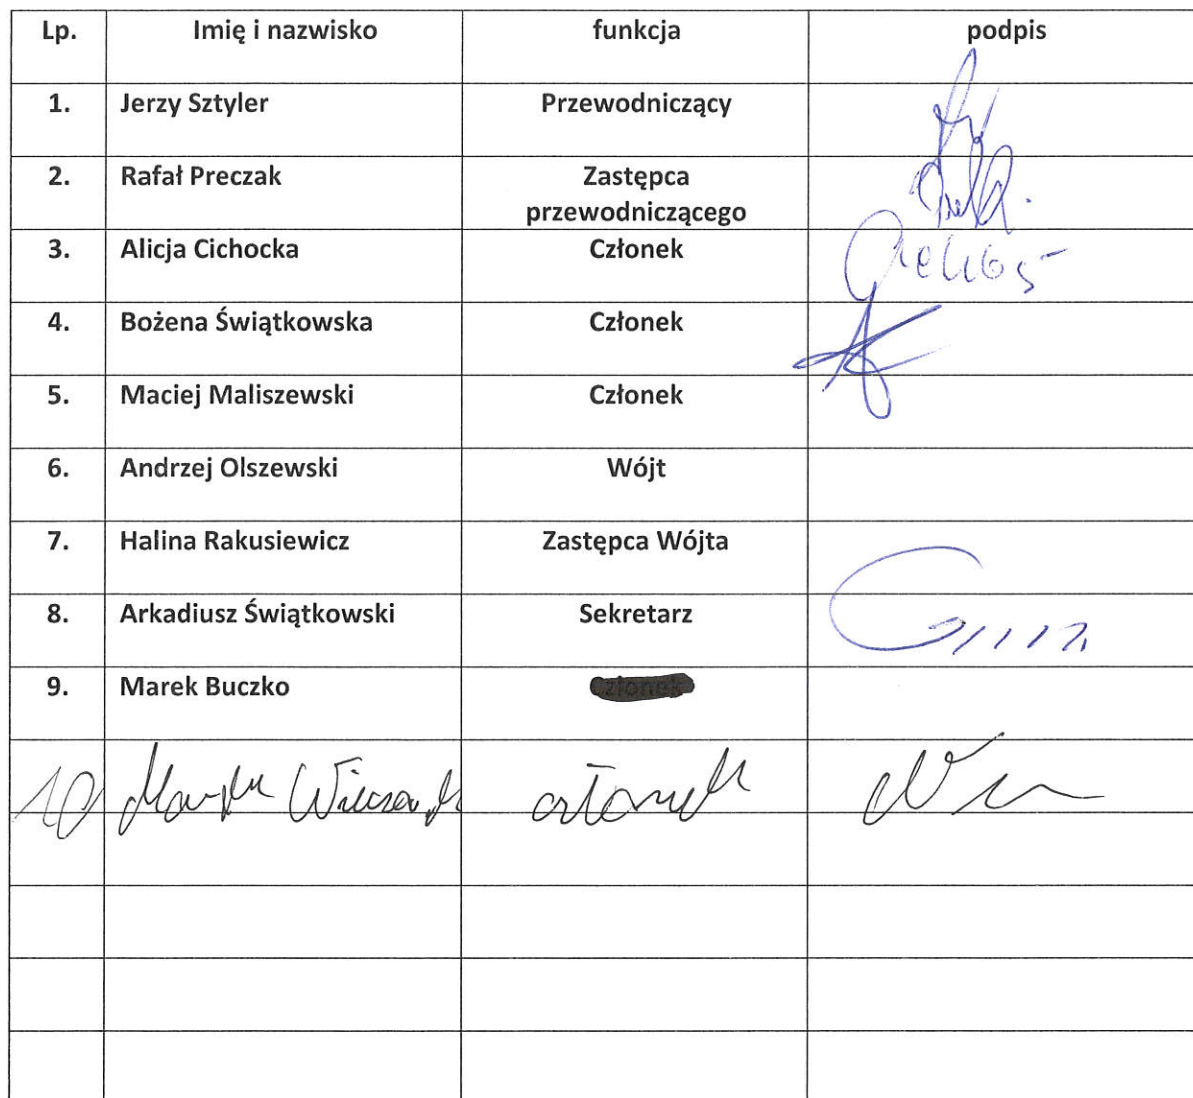 Lp. Imię i nazwisko funkcja podpis
1. Jerzy Sztyler Przewodniczący
2. Rafał Preczak Zastępca
przewodniczącego
3. Alicja Cichocka Członek
4. Bożena Świątkowska Członek
5. Maciej Maliszewski Członek
6. Andrzej Olszewski Wójt
7. Halina Rakusiewicz Zastępca Wójta
8. Arkadiusz Świątkowski Sekretarz
9. Marek Buczko Członek
10 członek